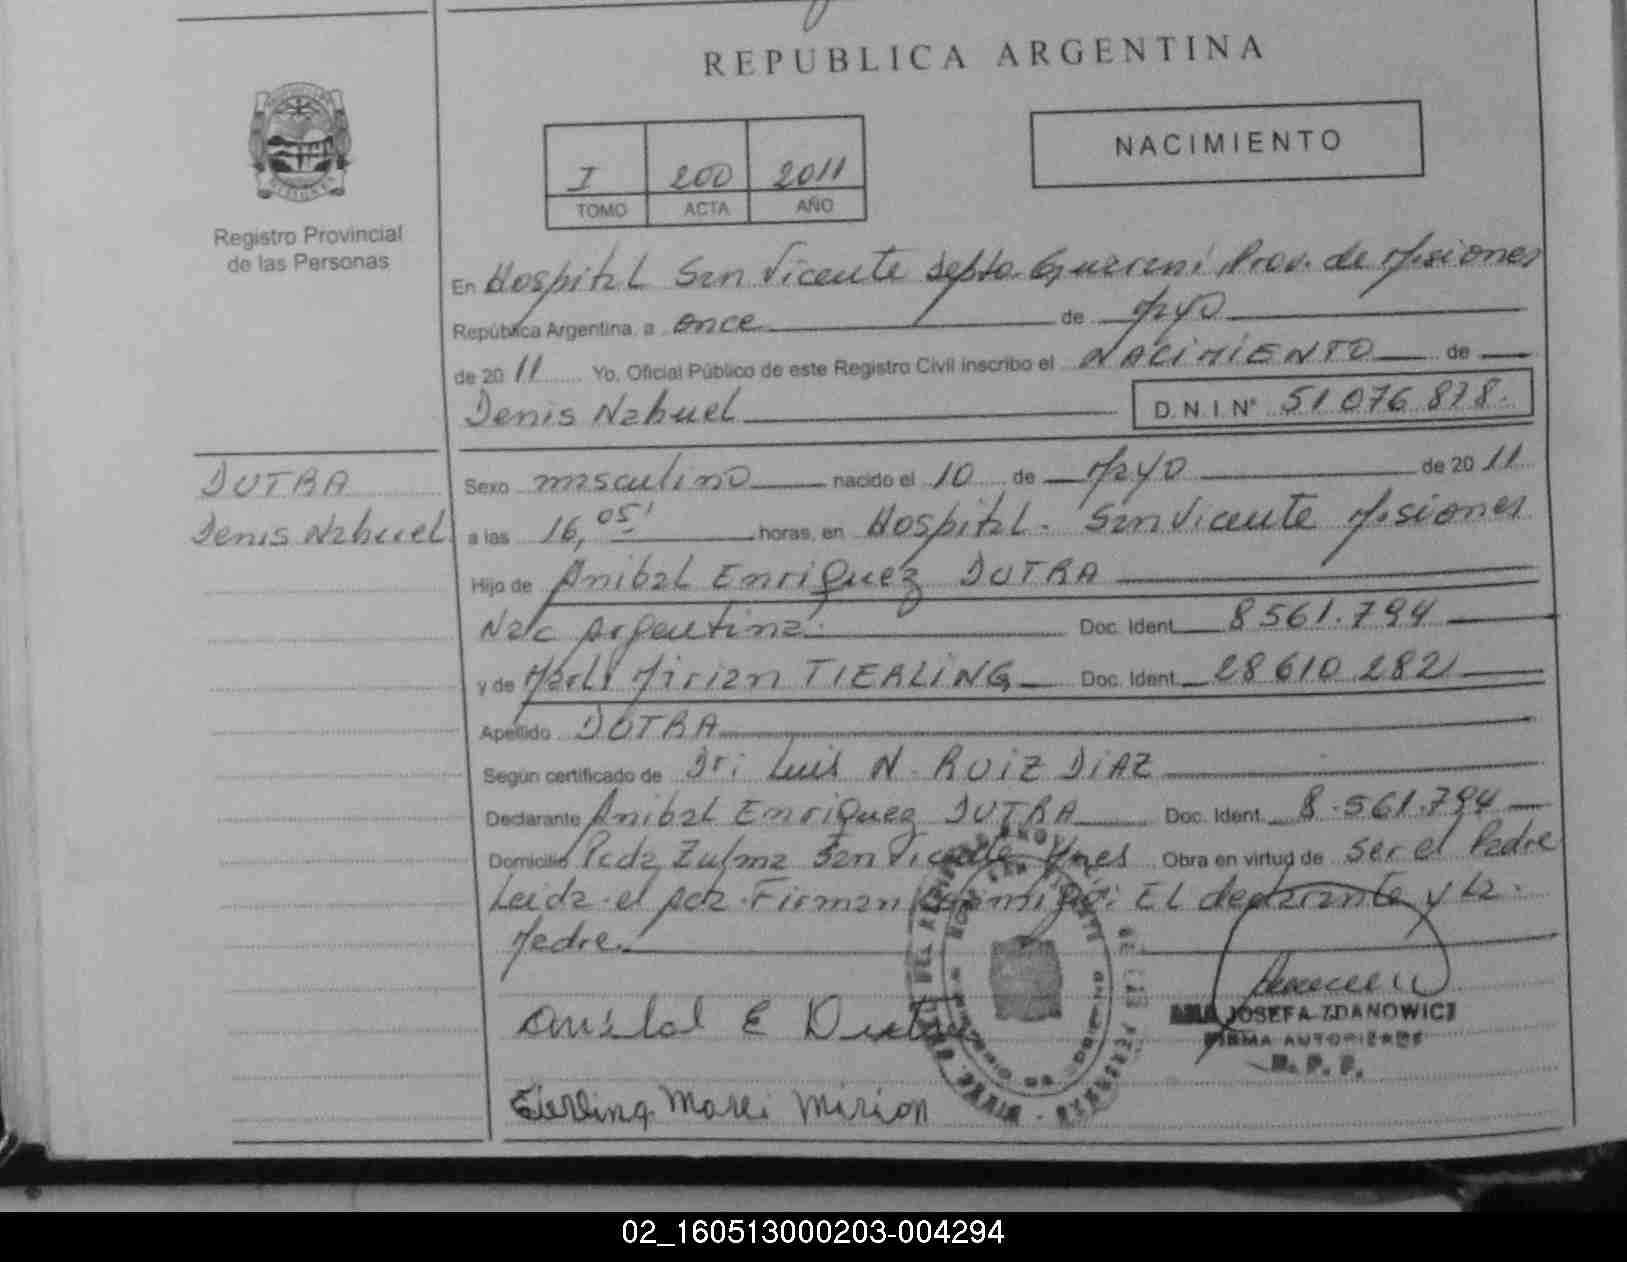 REPUBLICA ARGENTINA
NACIMIENTO
I 200 2011
TOMO ACTA AÑO
Registro Provincial
de las Personas
En Hospital San Vicente Depto. Guarani Prov. de Misiones
República Argentina, a once de Mayo
de 20 11 Yo, Oficial Público de este Registro Civil inscribo el NACIMIENTO de
Denis Nahuel D.N.I. N° 51 076 878.
DUTRA
Denis Nahuel
Sexo masculino nacido el 10 de Mayo de 20 11
a las 16,05' horas, en Hospital. San Vicente Misiones
Hijo de Anibal Enriquez DUTRA
Nac Argentina. Doc. Ident. 8561.794
y de Marli Mirian TIERLING Doc. Ident. 28 610 282
Apellido DUTRA
Según certificado de Dr: Luis N. RUIZ DIAZ
Declarante Anibal Enriquez DUTRA Doc. Ident. 8.561.794
Domicilio Pcda Zulma San Vicente Mnes Obra en virtud de ser el Padre
Leida el Acta Firman Conmigo: El declarante y La
Madre.
Anibal E Dutra
JOSEFA ZDANOWICZ
FIRMA AUTORIZADA
R. P. P.
Tierling Marli Mirian
02_160513000203-004294